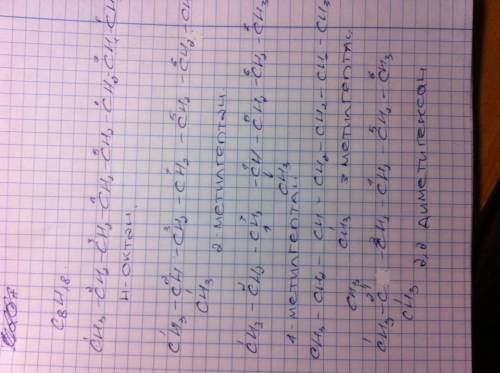 C8H18
CH3-CH2-CH2-CH2-CH2-CH2-CH2-CH
н-октан.
CH3-CH-CH2-CH2-CH2-CH2-CH
CH3
2 метилгептан
CH3-CH2-CH2-CH-CH2-CH2-CH3
CH3
4-метилгептан.
CH3-CH2-CH-CH2-CH2-CH2-CH3
CH3
3 метилгептан.
CH3
CH3-C-CH2-CH2-CH2-CH3
CH3
2,2 диметилгексан